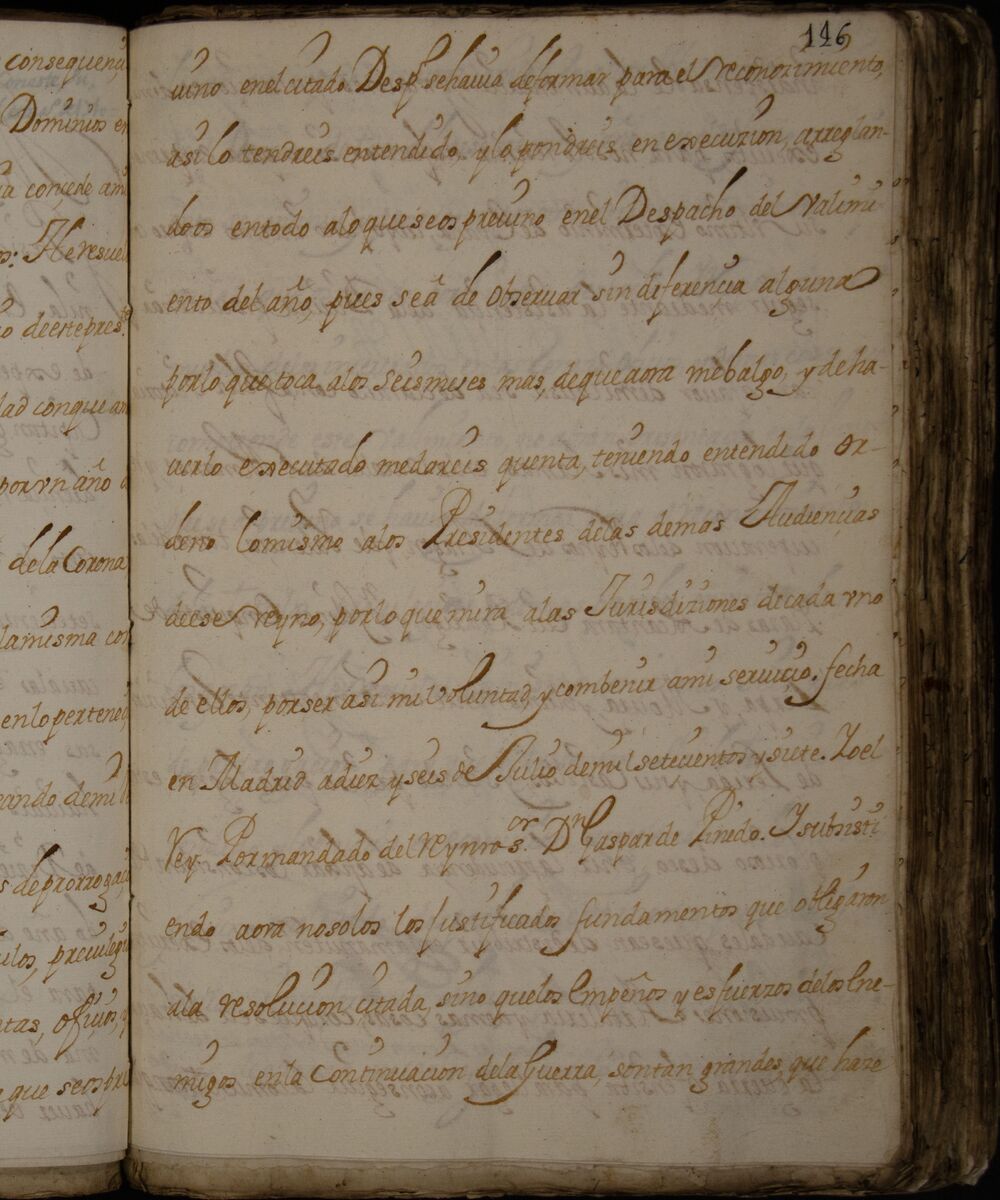 consequenã
Dominios en
concede ami
He resuel
deeste pres.te
dad conque am
por vn añ o
dela Corona
lamisma con
enlo pertene
ando demi
s deprorroga
ulos, preuileg
tas, ofiçios, y
que seos pre
146
uino enel citado Desp.º sehauia deformar para el reconozimiento,
asi lo tendreis entendido, y lo pondreis en execuzion, arreglan-
doos entodo alo que seos preuino enel Despacho del Valimi
ento del añ, pues seâ de obseruar sin deferencia alguna
por lo que toca alos seis meses mas, de que aora mebalgo, y deha-
uerlo executado medareis quenta, teniendo entendido or-
deno lo mismo alos Presidentes delas demas Audiencias
deese reyno, por lo que mira alas Jurisdiziones decada vno
de ellos, por ser asi mi Voluntad, y combenir ami seruicio. fecha
en Madrid adiez y seis de Julio demil setecientos y siete. Yo el
rey. Por mandado del rey nro s.or D.n Gaspar de Pinedo. Y subsisti
endo aora nosolos los justificados fundamentos que obligaron
ala resoluzion citada, sino que los Empeños y esfuerzos delos Ene-
migos en la Continuacion dela Guerra, son tan grandes, que haze